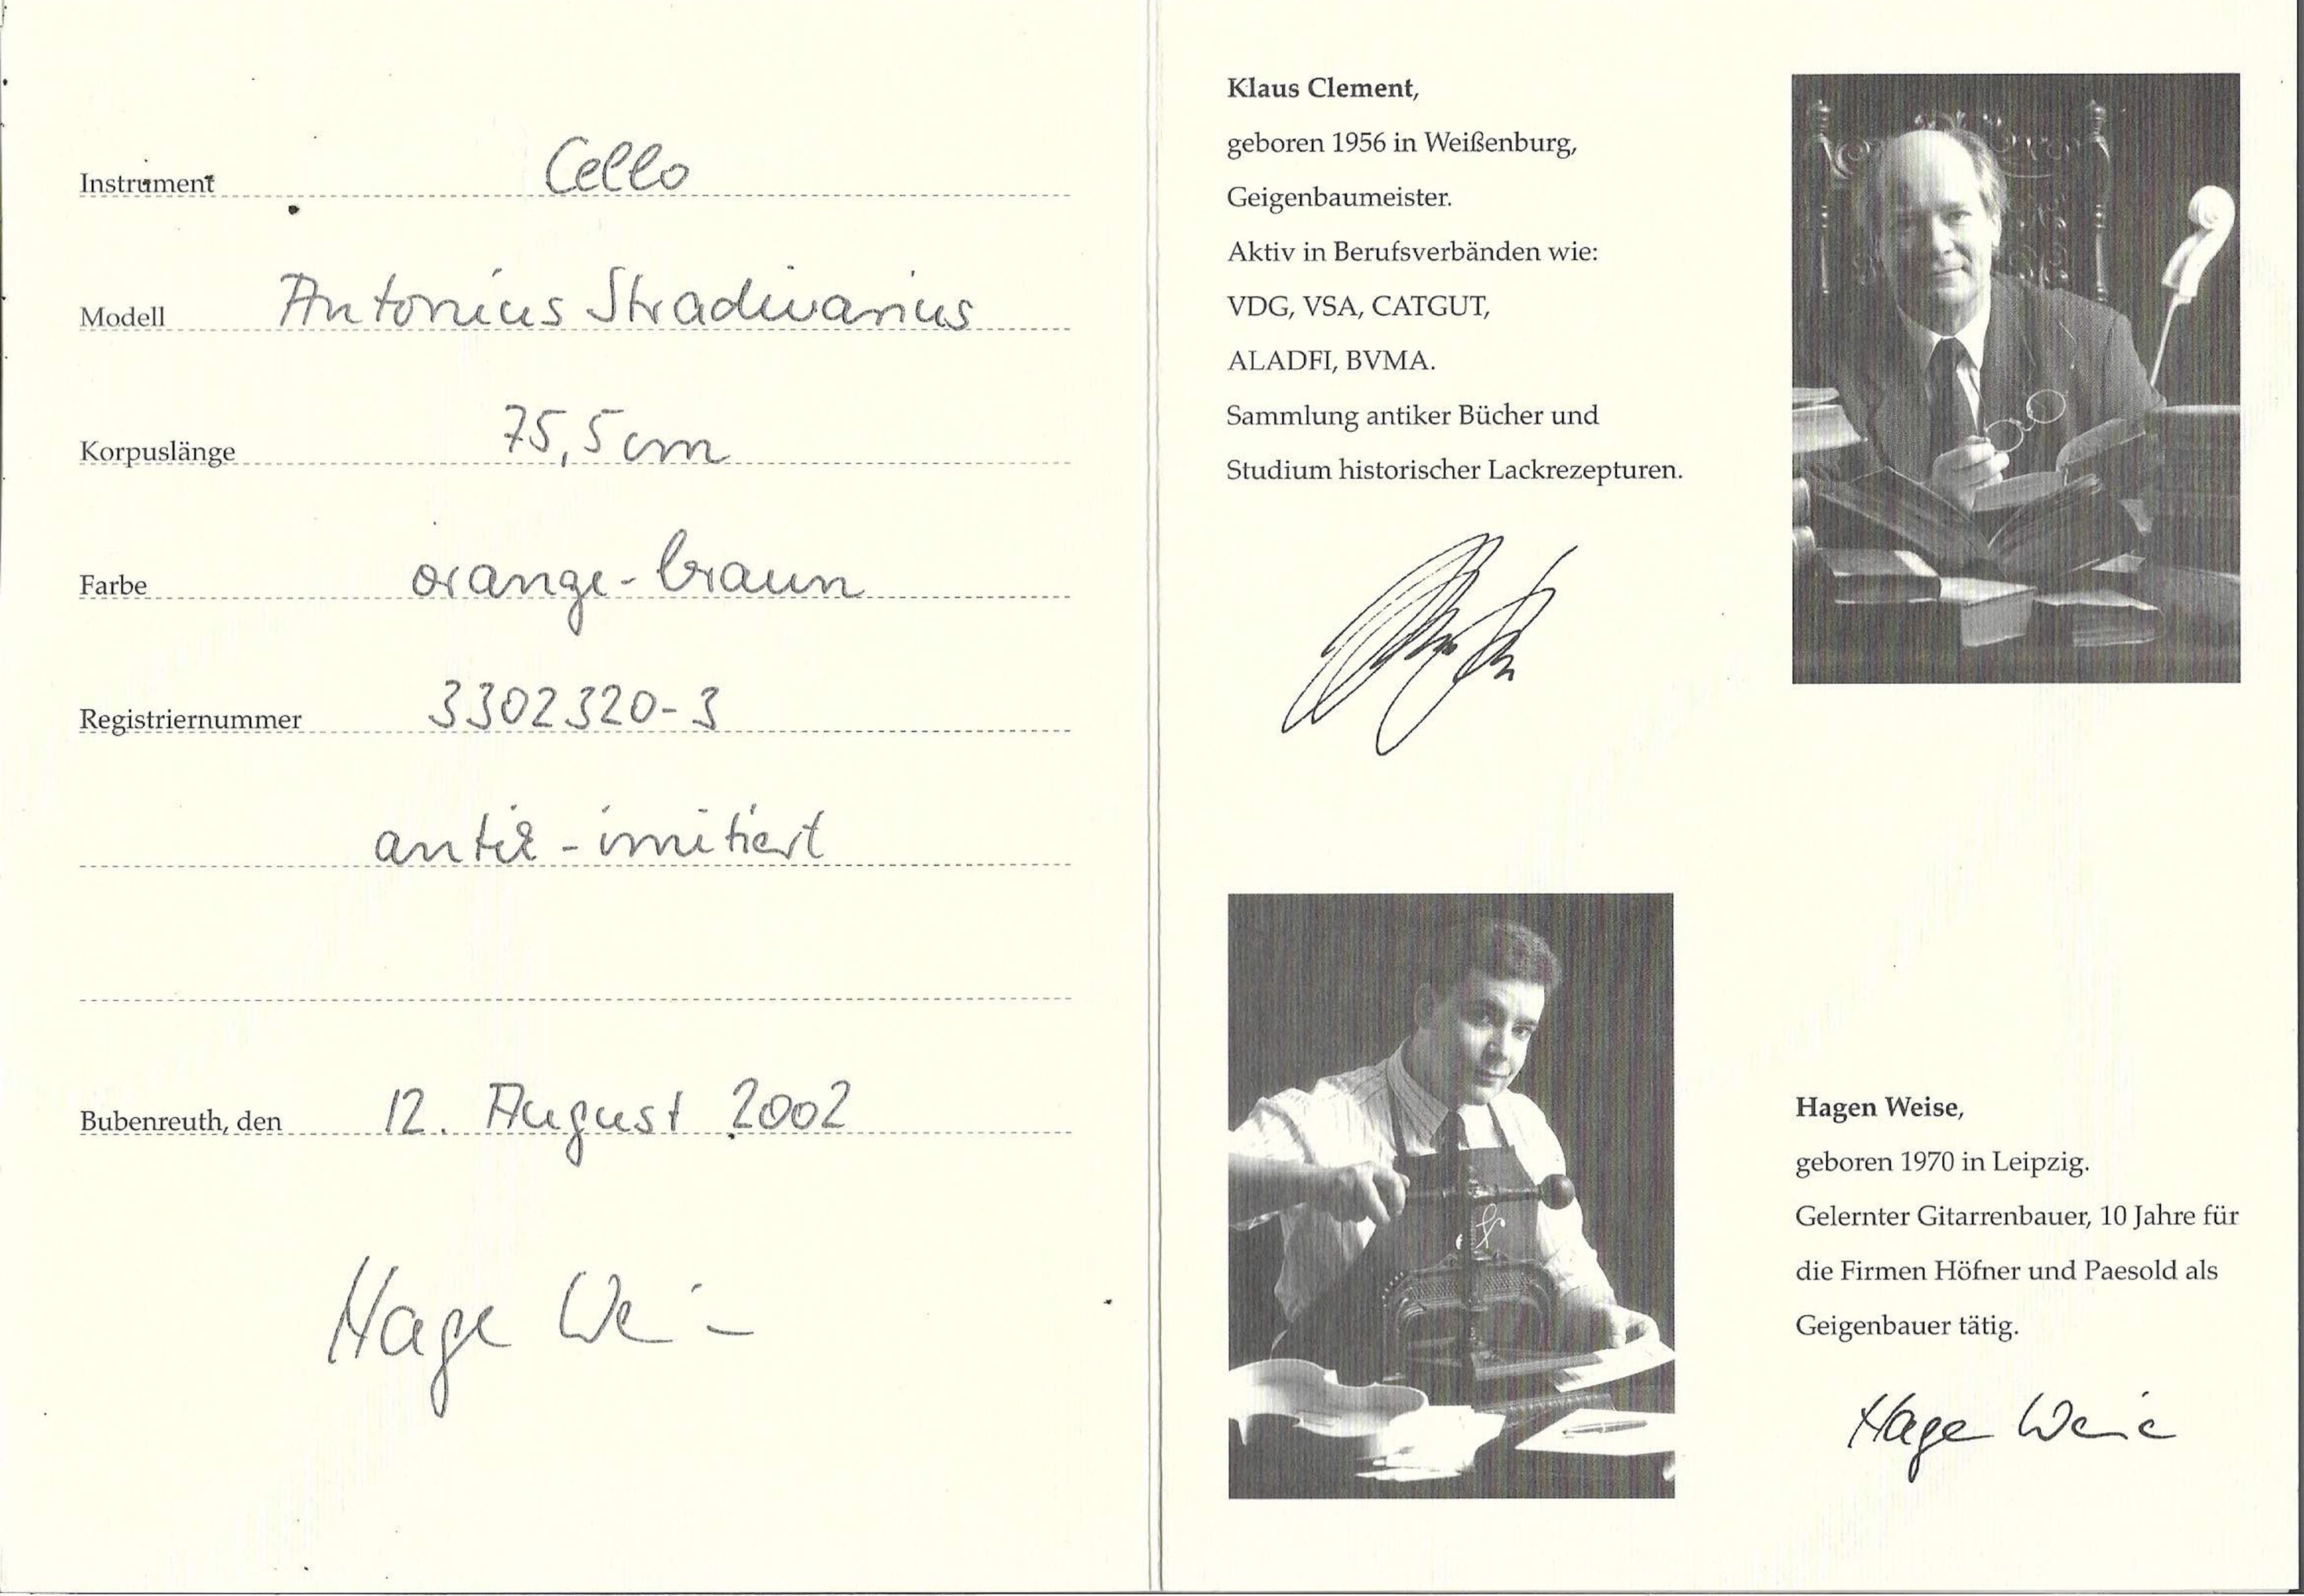 Instrument Cello
Modell Antonius Stradivarius
Korpuslänge 75,5 cm
Farbe orange-braun
Registriernummer 3302320-3
antik-imitiert
Bubenreuth, den 12. August 2002
Klaus Clement,
geboren 1956 in Weißenburg,
Geigenbaumeister.
Aktiv in Berufsverbänden wie:
VDG, VSA, CATGUT,
ALADFI, BVMA.
Sammlung antiker Bücher und
Studium historischer Lackrezepturen.
Hagen Weise,
geboren 1970 in Leipzig.
Gelernter Gitarrenbauer, 10 Jahre für
die Firmen Höfner und Paesold als
Geigenbauer tätig.